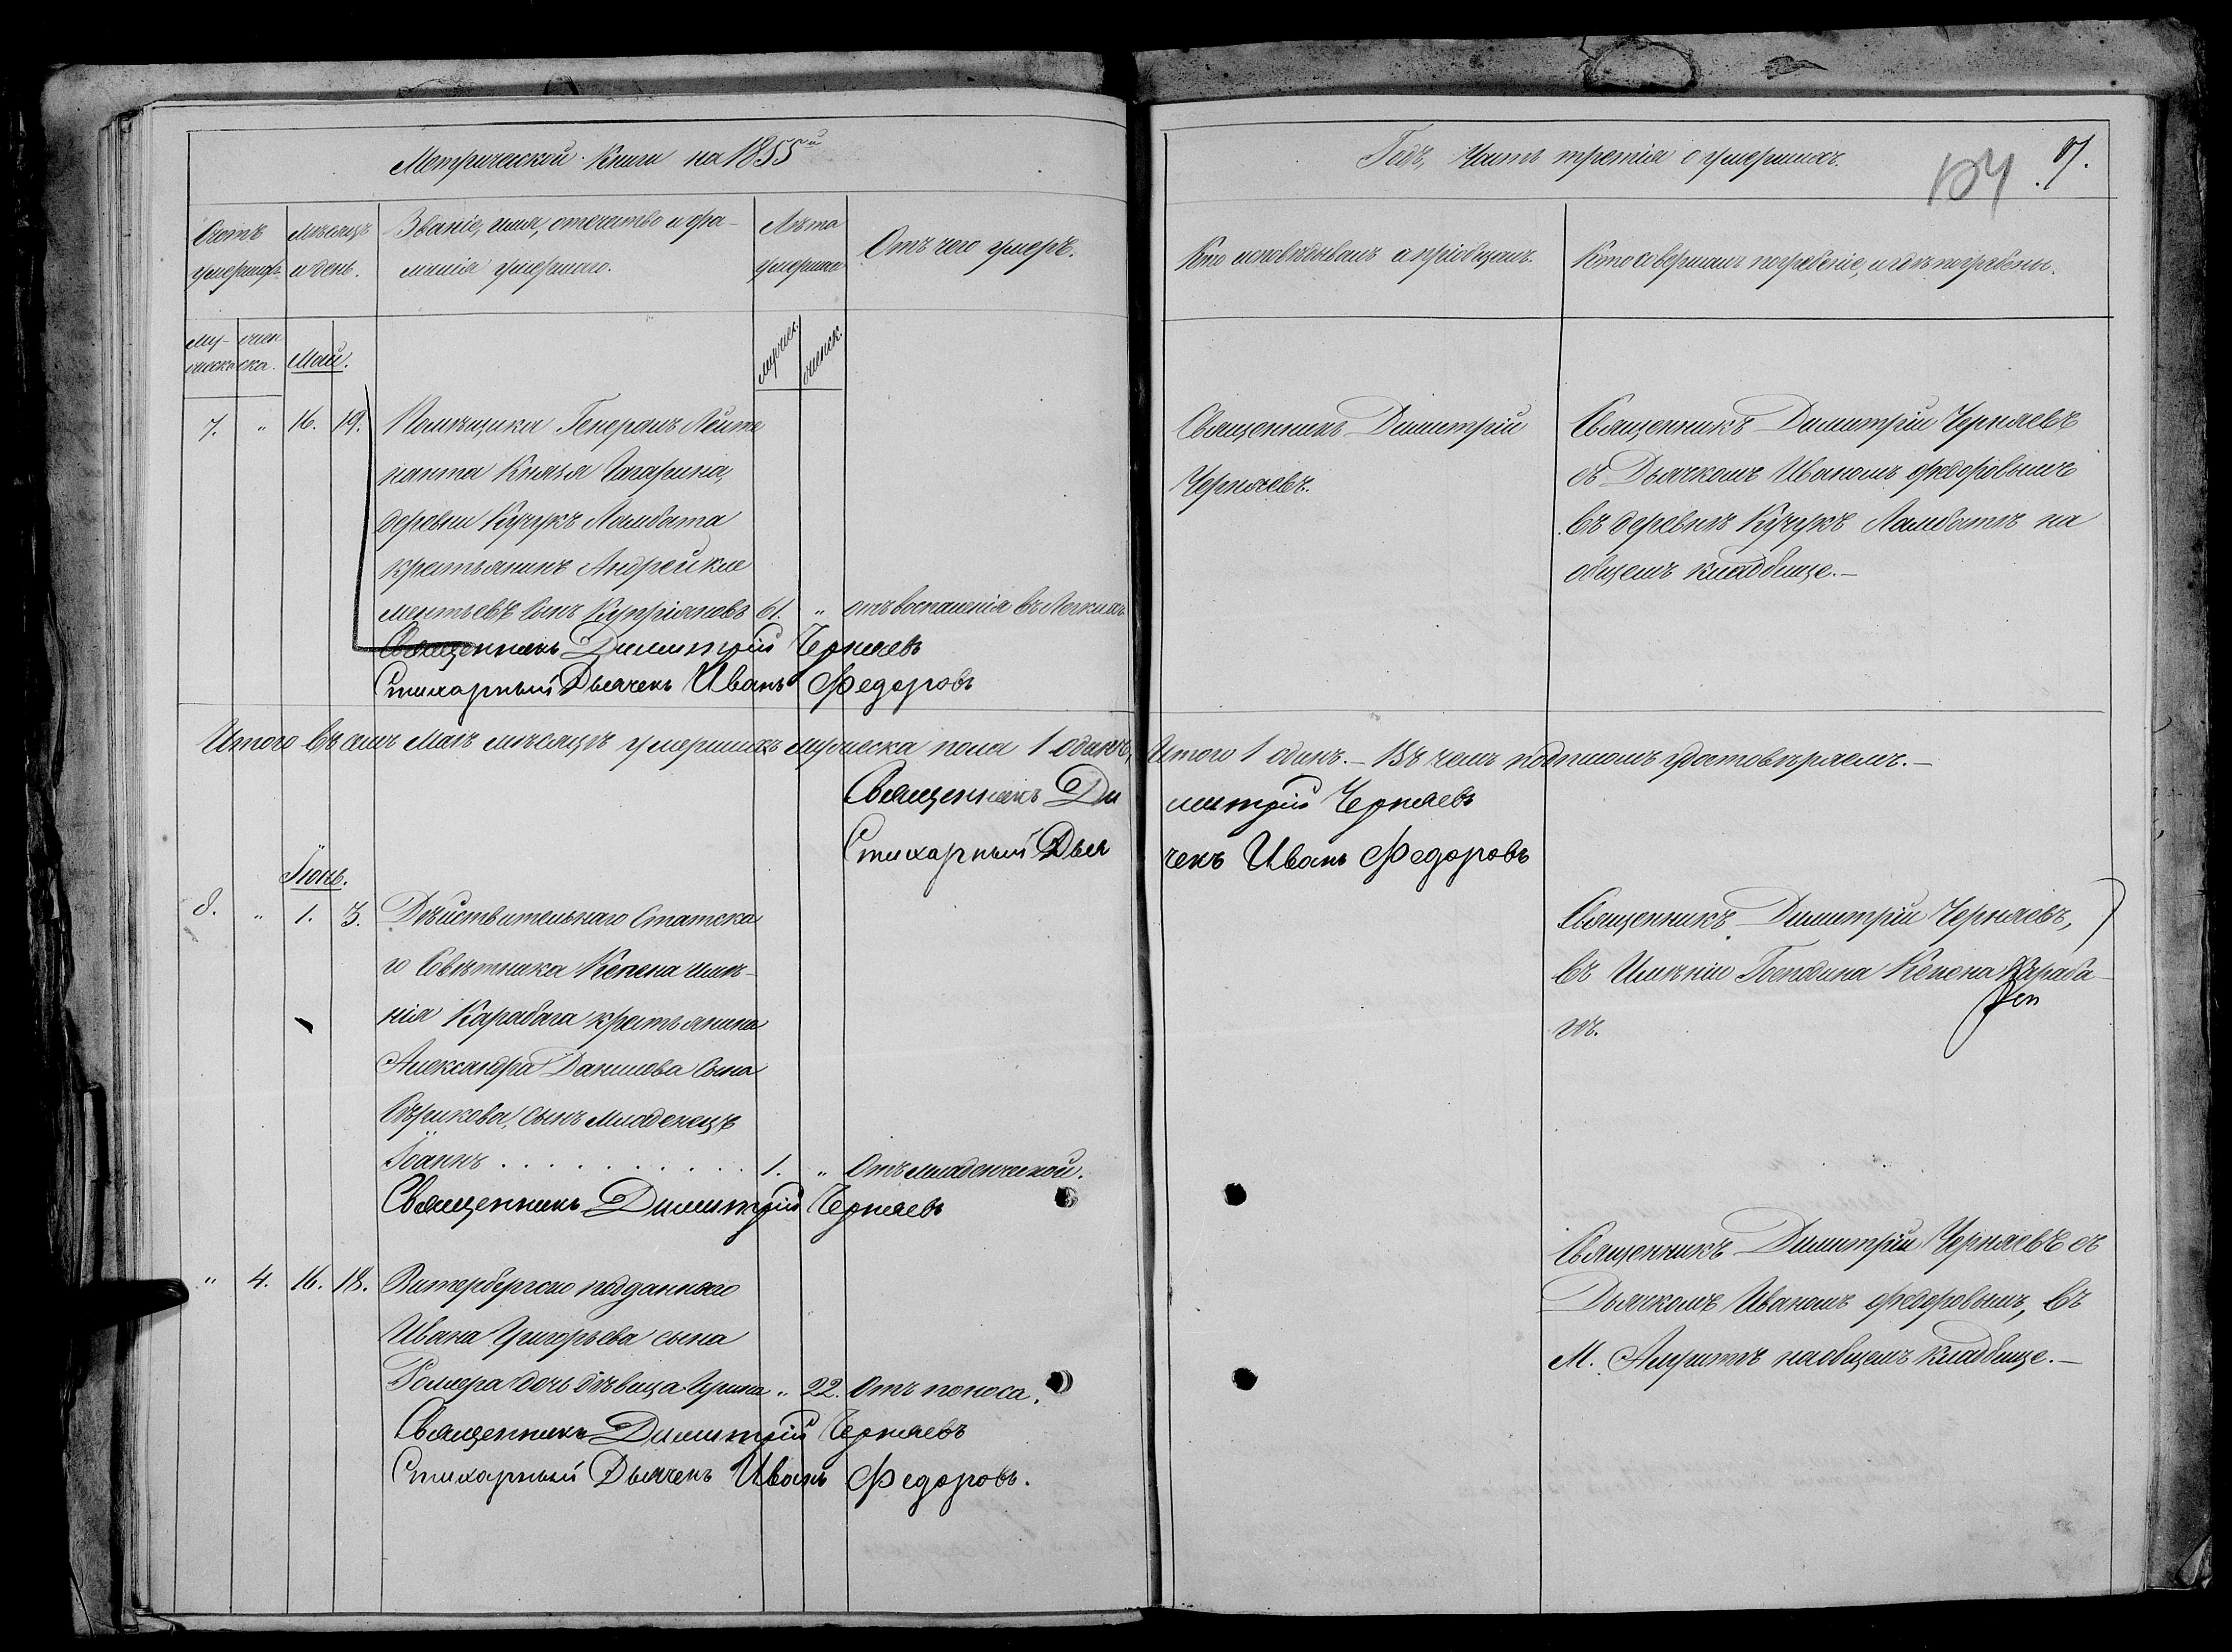 Метрической Книги на 1855й
Счетъ умершихъ.
мѣсяцъ и день.
Званіе, имя, отчество и фамилія умершаго.
Лѣта умершаго
Отъ чего умеръ.
муженска
женска.
Май.
мужес.
женск.
7. " 16. 19. Помѣщика Генералъ Лейте
нанта Князя Гагарина,
деревни Кучукъ Ламбата
крестьянинъ Андрей Кле
ментьевъ сынъ Купріяновъ 61. " отъ воспаленія въ Легкихъ.
Священникъ Димитрій Черняевъ
Стихарный Дьячекъ Иванъ Федоровъ
Итого въ семъ Маѣ мѣсяцѣ умершихъ мужеска пола 1 одинъ,
Священникъ Ди
Стихарный Дья
Іюнь.
8. " 1. 3. Дѣйствительнаго Статска
го Совѣтника Кепена имѣ-
нія Карабага крестьянина
Александра Данилова сына
сынъ младенецъ
Іоаннъ . . . . . . . . . . . 1. " Отъ младенческой.
Священникъ Димитрій Черняевъ
" 4. 16. 18. Витербергскаго подданнаго
Ивана Григорьева сына
Ромера дочь дѣвица Ирина " 22. Отъ поноса.
Священникъ Димитрій Черняевъ
Стихарный Дьячекъ Иванъ Федоровъ.
Годъ, Часть третія о умершихъ.
Кто исповѣдывалъ и пріобщалъ.
Кто совершалъ погребеніе, и гдѣ погребены.
Священникъ Димитрій
Черняевъ.
Священникъ Димитрій Черняевъ
съ Дьячкомъ Иваномъ Федоровымъ
въ деревнѣ Кучукъ Ламбатѣ на
общемъ кладбище.—
Итого 1 одинъ.— Въ чемъ подписомъ удостовѣряемъ.—
митрій Черняевъ
чекъ Иванъ Федоровъ
Священникъ Димитрій Черняевъ,
въ Имѣніи Господина Кепена Караба-
гѣ.
Священникъ Димитрій Черняевъ съ
Дьячкомъ Иваномъ Федоровымъ, въ
М. Алуштѣ на общемъ кладбище.—